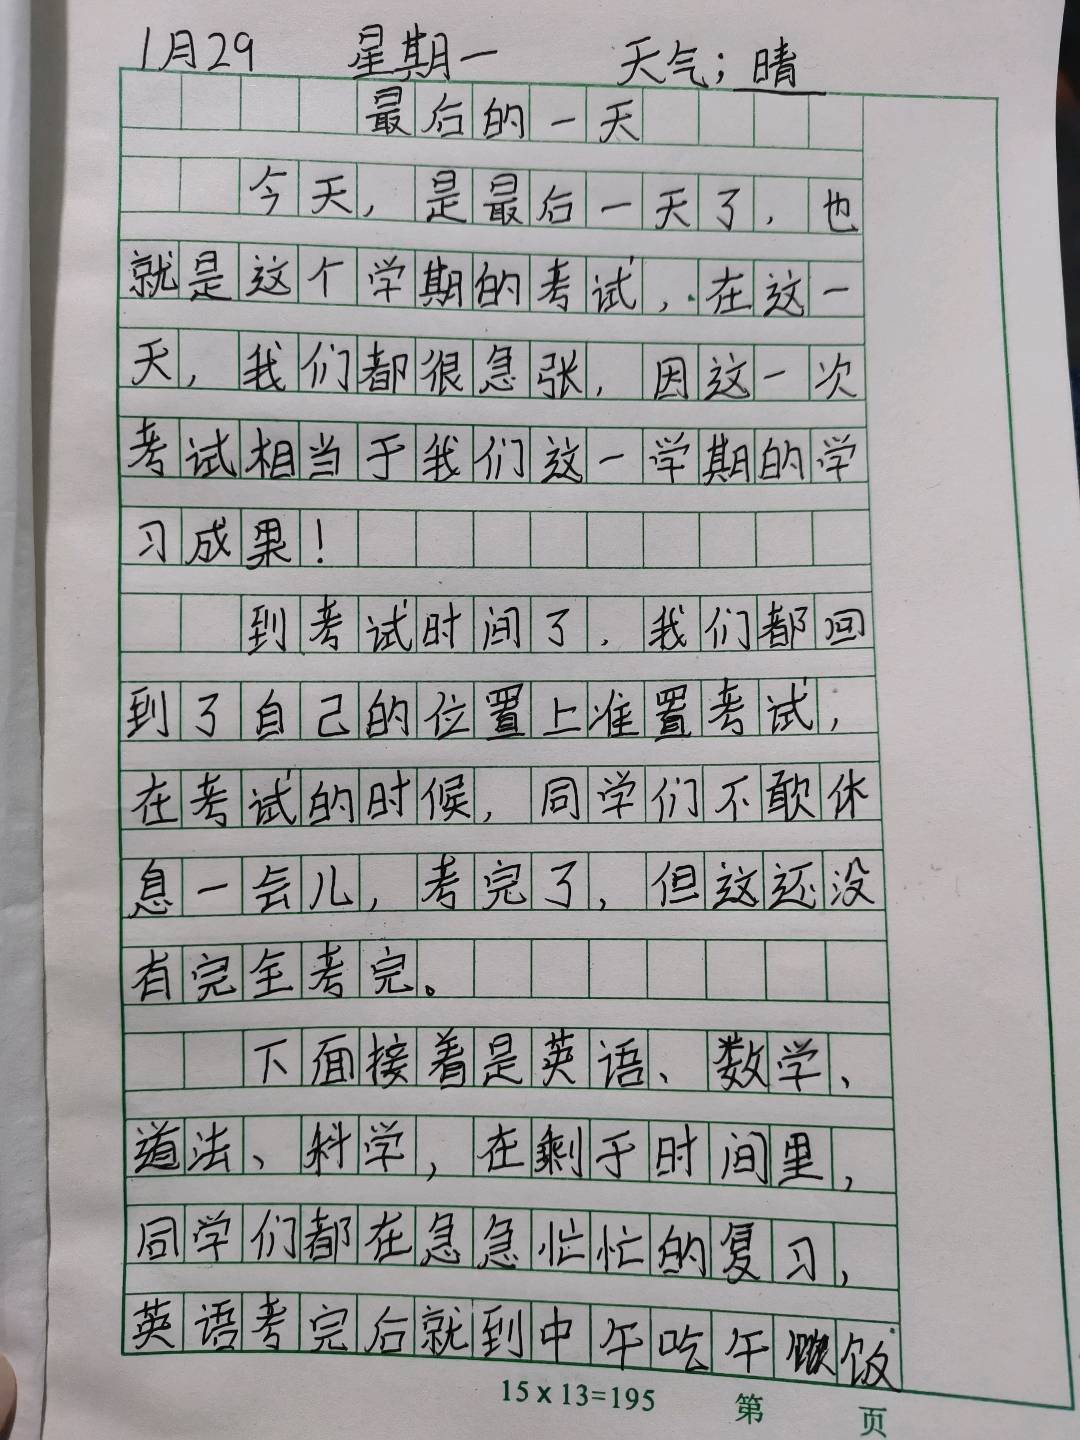 1月29 星期一 天气；晴
最后的一天
今天，是最后一天了，也
就是这个学期的考试，在这一
天，我们都很急张，因这一次
考试相当于我们这一学期的学
习成果！
到考试时间了，我们都回
到了自己的位置上准置考试，
在考试的时候，同学们不敢休
息一会儿，考完了，但这还没
有完全考完。
下面接着是英语、数学、
道法、科学，在剩于时间里，
同学们都在急急忙忙的复习，
英语考完后就到中午吃午饭
15×13=195 第 页